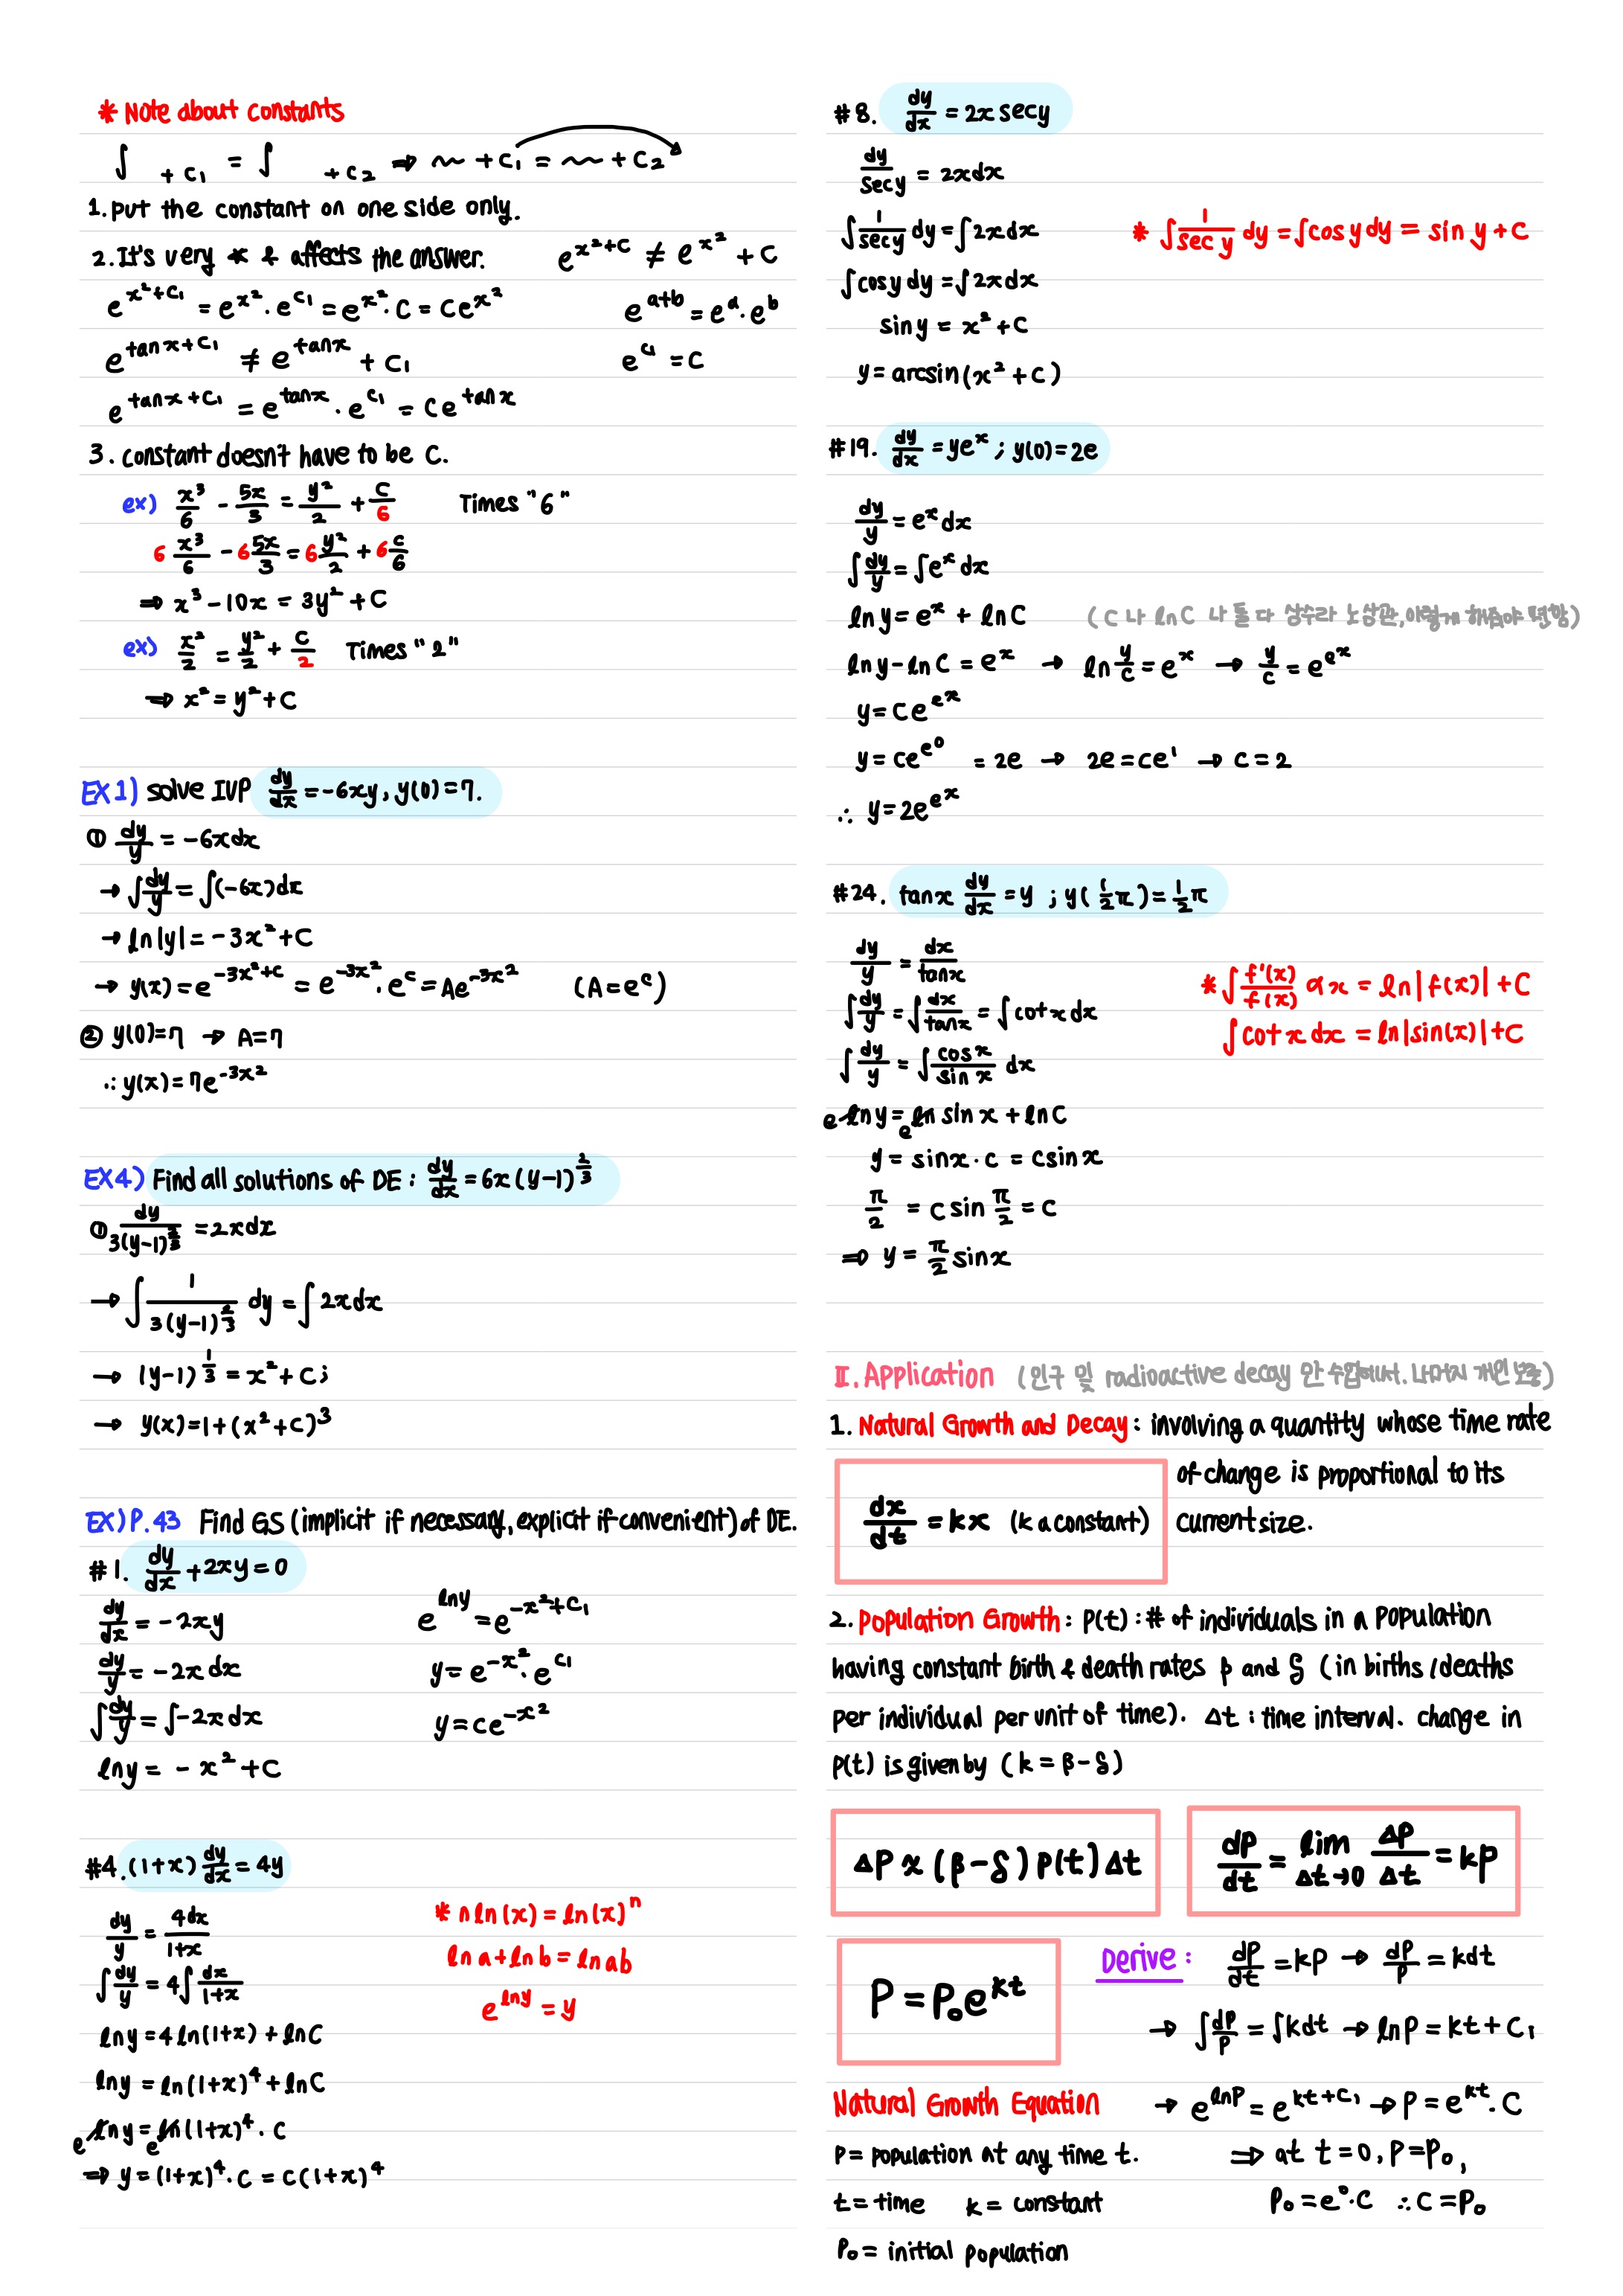 * Note about constants
∫ + C₁ = ∫ + C₂ ⇒ ~~ + C₁ = ~~ + C₂
1. put the constant on one side only.
2. It's very * & affects the answer. e^(x²+C) ≠ e^(x²) + C
e^(x²+C₁) = e^(x²)·e^(C₁) = e^(x²)·C = Ce^(x²) e^(a+b) = e^a·e^b
e^(tanx+C₁) ≠ e^(tanx) + C₁ e^(C₁) = C
e^(tanx+C₁) = e^(tanx)·e^(C₁) = Ce^(tanx)
3. constant doesn't have to be C.
ex) x³/6 - 5x/3 = y²/2 + C/6 Times "6"
6 x³/6 - 6 5x/3 = 6 y²/2 + 6 C/6
⇒ x³ - 10x = 3y² + C
ex) x²/2 = y²/2 + C/2 Times "2"
⇒ x² = y² + C
EX1) solve IVP dy/dx = -6xy, y(0)=7.
① dy/y = -6xdx
→ ∫dy/y = ∫(-6x)dx
→ ln|y| = -3x² + C
→ y(x) = e^(-3x²+C) = e^(-3x²)·e^C = Ae^(-3x²) (A = e^C)
② y(0)=7 → A=7
∴ y(x) = 7e^(-3x²)
EX4) Find all solutions of DE : dy/dx = 6x(y-1)^(2/3)
① dy/3(y-1)^(2/3) = 2xdx
→ ∫ 1/3(y-1)^(2/3) dy = ∫ 2xdx
→ (y-1)^(1/3) = x² + C;
→ y(x) = 1+(x²+C)³
EX) P.43 Find G.S (implicit if necessary, explicit if convenient) of DE.
#1. dy/dx + 2xy = 0
dy/dx = -2xy e^(lny) = e^(-x²+C₁)
dy/y = -2xdx y = e^(-x²)·e^(C₁)
∫dy/y = ∫-2xdx y = ce^(-x²)
lny = -x² + C
#4. (1+x) dy/dx = 4y
dy/y = 4dx/1+x * n ln(x) = ln(x)ⁿ
∫dy/y = 4∫dx/1+x ln a + ln b = ln ab
lny = 4ln(1+x) + lnC e^(lny) = y
lny = ln(1+x)⁴ + lnC
e^lny = e^ln(1+x)⁴·C
⇒ y = (1+x)⁴·C = C(1+x)⁴
#8. dy/dx = 2x secy
dy/secy = 2xdx
∫1/secy dy = ∫2xdx * ∫1/sec y dy = ∫cosydy = sin y + C
∫cosydy = ∫2xdx
siny = x² + C
y = arcsin(x² + C)
#19. dy/dx = ye^x ; y(0) = 2e
dy/y = e^x dx
∫dy/y = ∫e^x dx
lny = e^x + lnC (C 나 lnC 나 둘 다 상수라 노상관, 이렇게 해줘야 편함)
lny - lnC = e^x → ln y/C = e^x → y/C = e^(e^x)
y = Ce^(e^x)
y = ce^(e^0) = 2e → 2e = ce¹ → c = 2
∴ y = 2e^(e^x)
#24. tanx dy/dx = y ; y(½π) = ½π
dy/y = dx/tanx * ∫f'(x)/f(x) dx = ln|f(x)| + C
∫dy/y = ∫dx/tanx = ∫cotxdx ∫cotxdx = ln|sin(x)| + C
∫dy/y = ∫cosx/sinx dx
e^lny = e^ln sinx + lnC
y = sinx·c = csinx
π/2 = c sin π/2 = c
⇒ y = π/2 sinx
II. Application (인구 및 radioactive decay 만 수업에서. 나머지 개인 보충)
1. Natural Growth and Decay : involving a quantity whose time rate
of change is proportional to its
current size.
dx/dt = kx (k a constant)
2. Population Growth : P(t) : # of individuals in a population
having constant birth & death rates β and δ (in births/deaths
per individual per unit of time). Δt : time interval. change in
P(t) is given by (k = β-δ)
ΔP ∝ (β-δ) P(t) Δt dP/dt = lim Δt→0 ΔP/Δt = kP
P = P₀e^(kt) Derive : dP/dt = kP → dP/P = kdt
→ ∫dP/P = ∫kdt → lnP = kt + C₁
Natural Growth Equation → e^(lnP) = e^(kt+C₁) → P = e^(kt)·C
P = population at any time t. ⇒ at t=0, P=P₀,
t = time k = constant P₀ = e⁰·C ∴ C = P₀
P₀ = initial population